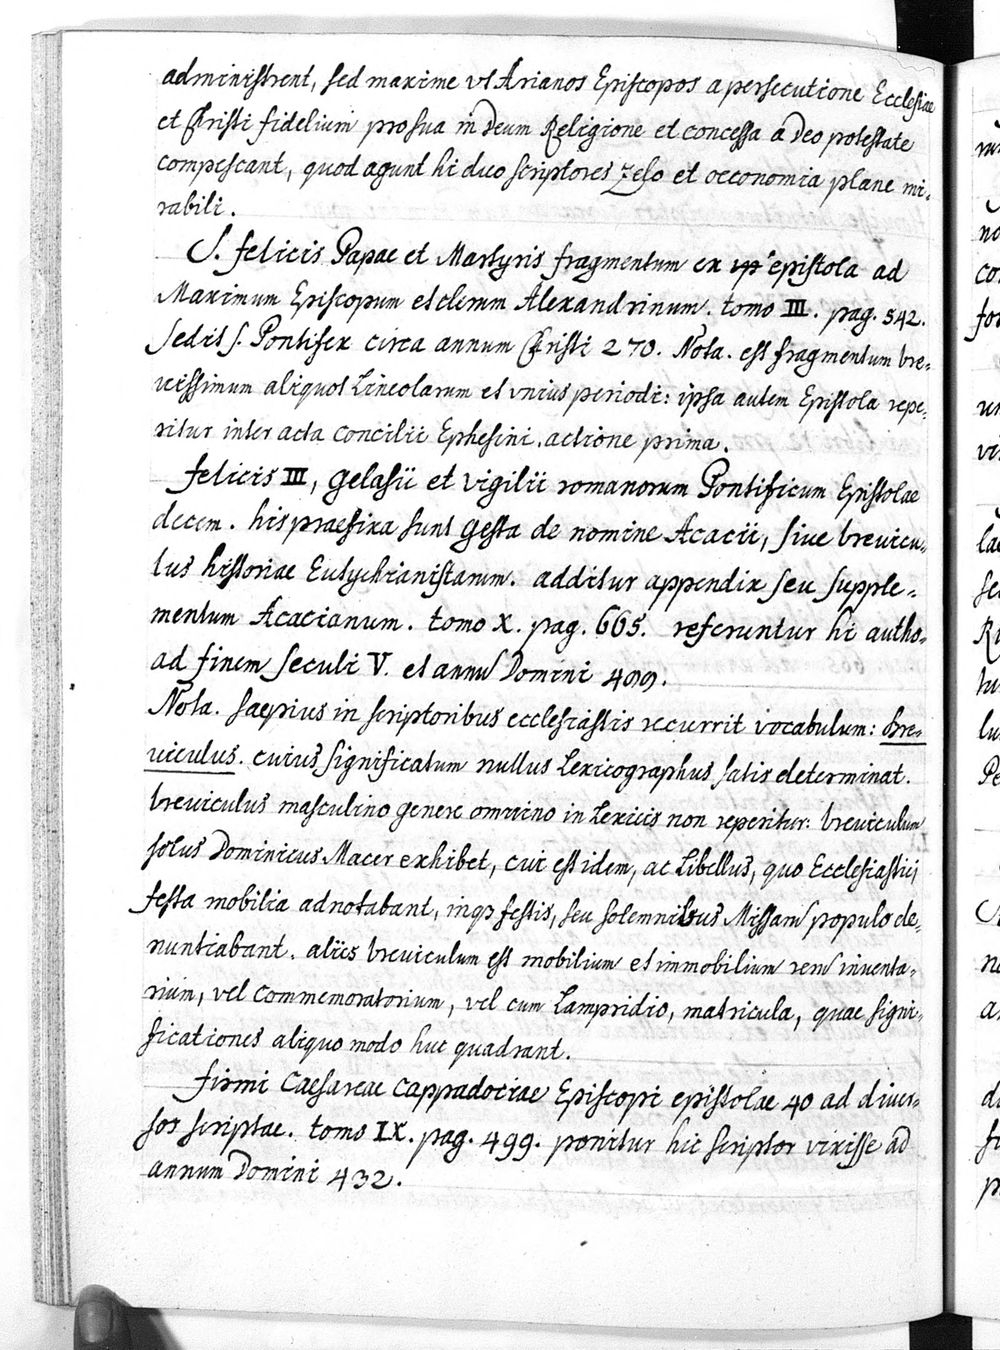 administrent, sed maxime vt Arianos Episcopos a persecutione Ecclesiae
et Christi fidelium pro sua in Deum Religione et concessa a Deo potestate
compescant, quod agunt hi duo scriptores zelo et oeconomia plane mi-
rabili.
S. felicis Papae et Martyris fragmentum ex epistola ad
Maximum Episcopum et clerum Alexandrinum. tomo III. pag. 542.
sedit S. Pontifex circa annum Christi 270. Nota. est fragmentum bre-
uissimum aliquot Lineolarum et vnius periodi: ipsa autem Epistola repe-
ritur inter acta Concilii Ephesini. actione prima.
felicis III, gelasii et vigilii romanorum Pontificum Epistolae
decem. his praefixa sunt gesta de nomine Acacii, siue breuicu-
lus historiae Eutychianistarum. additur appendix seu supple-
mentum Acacianum. tomo X. pag. 665. referuntur hi autho-
ad finem seculi V. et annu Domini 499.
Nota. saepius in scriptoribus ecclesiastis recurrit vocabulum: bre-
uiculus. cuius significatum nullus Lexicographus satis determinat.
breuiculus masculino genere omnino in Lexicis non reperitur: breuiculum
solus Dominicus Macer exhibet, cui est idem, ac Libellus, quo Ecclesiastici
festa mobilia adnotabant, inq3 festis, seu solemnibus Missam populo de-
nuntiabant. aliis breuiculum est mobilium et immobilium reru inuenta-
rium, vel Commemoratorium, vel cum Lampridio, matricula, quae signi-
ficationes aliquo modo huc quadrant.
firmi Caesareae Cappadociae Episcopi epistolae 40 ad diuer-
sos scriptae. tomo IX. pag. 499. ponitur hic scriptor vixisse ad
annum Domini 432.